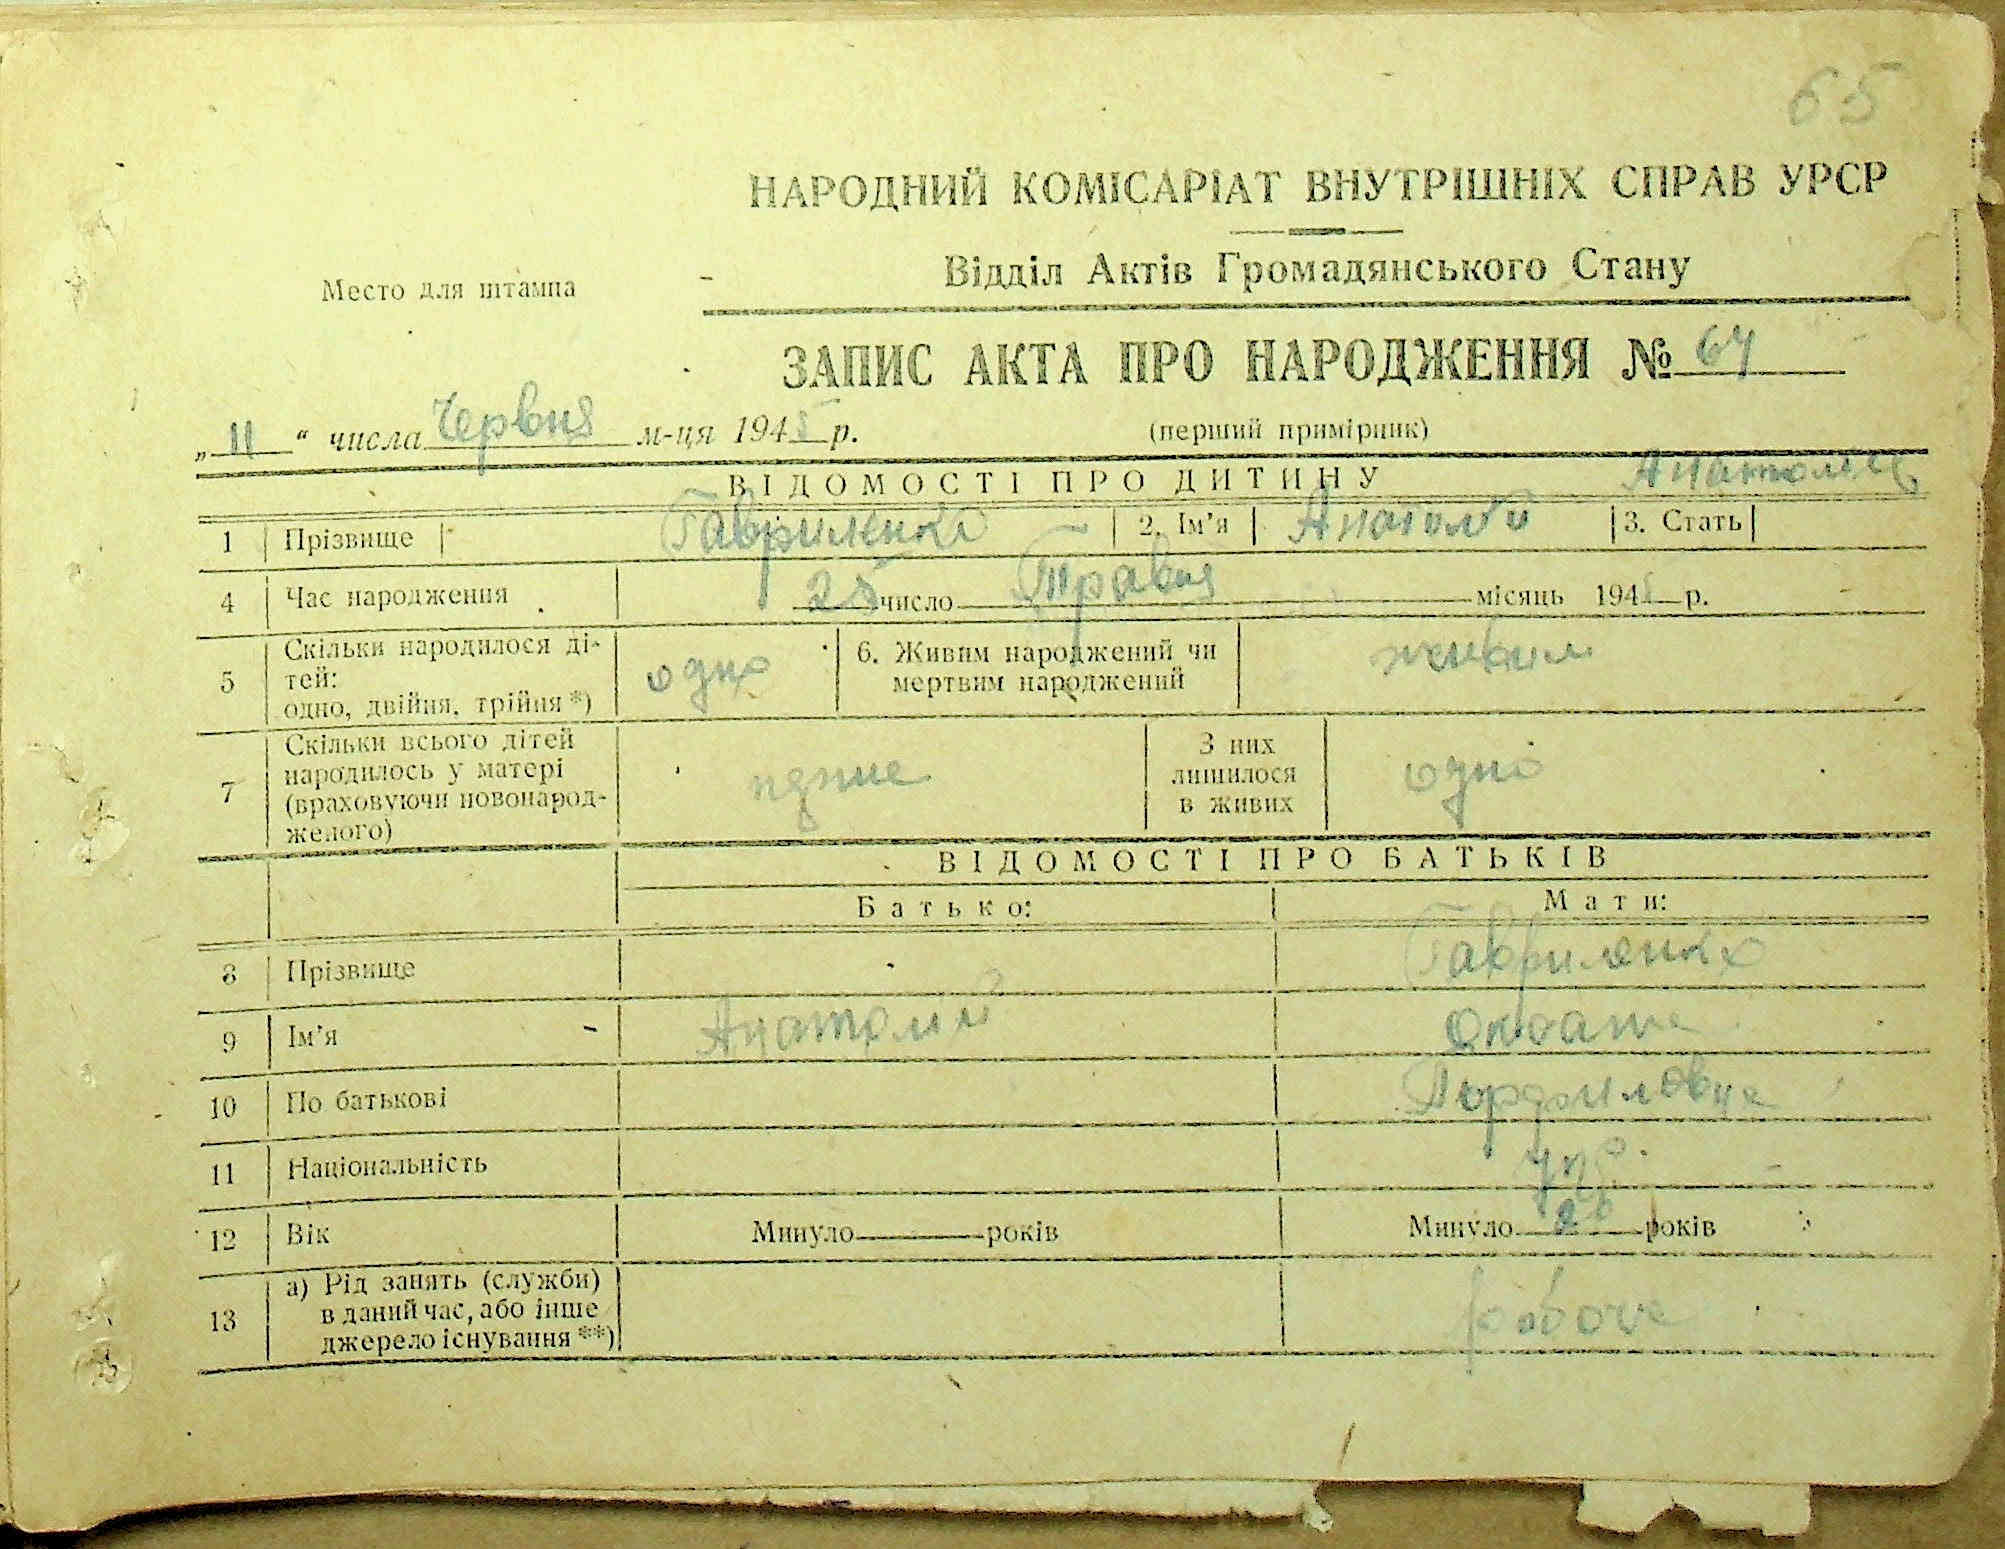 65
НАРОДНИЙ КОМІСАРІАТ ВНУТРІШНІХ СПРАВ УРСР
Відділ Актів Громадянського Стану
Место для штампа
ЗАПИС АКТА ПРО НАРОДЖЕННЯ № 64
„11“ числа Червня м-ця 1945 р.
(перший примірник)
ВІДОМОСТІ ПРО ДИТИНУ
1 Прізвище Гавриленко 2. Ім'я Анатолій 3. Стать
4 Час народження 25 число Травня місяць 1945 р.
5 Скільки народилося дітей: одно, двійня, трійня *) одно 6. Живим народжений чи мертвим народжений живим
7 Скільки всього дітей народилось у матері (враховуючи новонародженого) З них лишилося в живих одно
ВІДОМОСТІ ПРО БАТЬКІВ
Батько: Мати:
8 Прізвище Гавриленко
9 Ім'я Анатолій
10 По батькові
11 Національність укр.
12 Вік Минуло року років Минуло років
13 а) Рід занять (служби) в даний час, або інше джерело існування **)